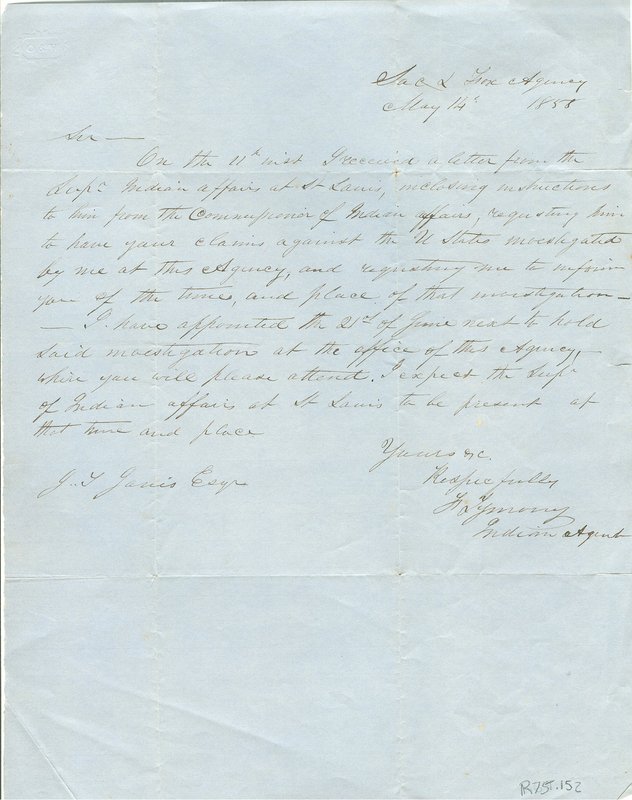 Sac & Fox Agency
May 14th 1858
Sir —
On the 11th inst I received a letter from the
Supt Indian affairs at St Louis, inclosing instructions
to him from the Commissioner of Indian affairs, requesting him
to have your claims against the U States investigated
by me at this Agency, and requesting me to inform
you of the time, and place of that investigation —
— I have appointed the 21st of June next to hold
said investigation at the office of this Agency,
where you will please attend. I expect the Supt
of Indian affairs at St Louis to be present at
that time and place
Yours &c.
Respecfully
Indian Agent
J. T Jones Esqr
R75.152